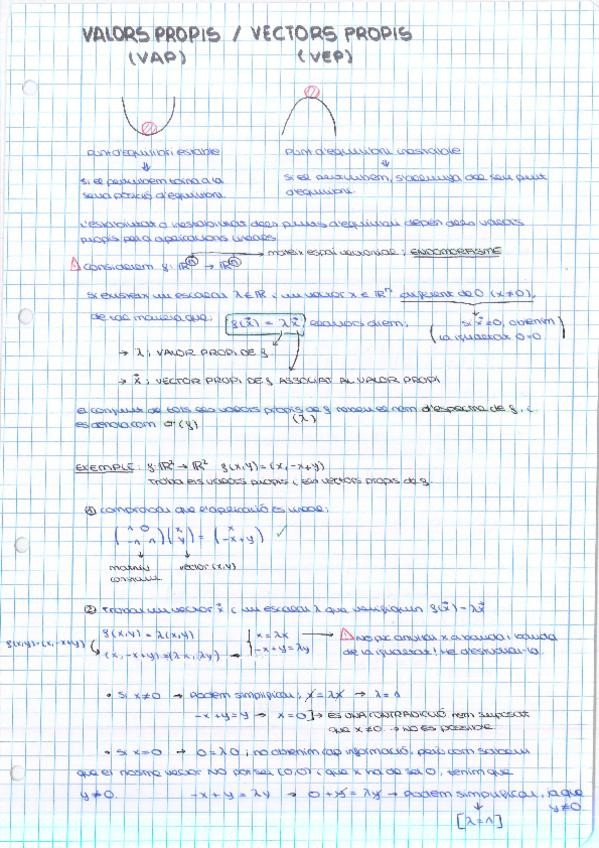 VALORS PROPIS / VECTORS PROPIS
(VAP) (VEP)
Punt d'equilibri estable
Si el perturbem torna a la
seva posició d'equilibri
Punt d'equilibri inestable
Si el perturbem, s'allunya del seu punt
d'equilibri
L'estabilitat o inestabilitat dels punts d'equilibri depèn dels valors
propis per a aplicacions lineals
mateix espai vectorial; ENDOMORFISME
Considerem f: ℝⁿ → ℝⁿ
Si existeix un escalar λ∈ℝ i un valor x ∈ ℝⁿ diferent de 0 (x≠0),
de tal manera que: f(x⃗) = λx⃗, llavors diem:
(si x⃗=0, obtenim
la igualtat 0=0)
→ λ; VALOR PROPI DE f
→ x⃗; VECTOR PROPI DE f ASSOCIAT AL VALOR PROPI
(λ)
El conjunt de tots els valors propis de f s'anomena d'espectre de f, i
es denota com σ(f)
EXEMPLE: f: ℝ² → ℝ² f(x,y) = (x, -x+y)
Troba els valors propis i els vectors propis de f.
① Comprovar que l'aplicació és lineal:
(1 0 / -1 1)(x / y) = (x / -x+y) ✓
matriu vector (x,y)
② Trobar un vector x⃗ i un escalar λ que verifiquin f(x⃗) = λx⃗
f(x,y)=(x,-x+y)
f(x,y) = λ(x,y)
(x,-x+y) = (λx, λy) →
x = λx
-x+y = λy
No puc anul·lar x a banda i banda
de la igualtat! He d'estudiar-la.
• Si x≠0 → Podem simplificar; x = λx → λ=1
-x+y=y → x=0] → ÉS UNA CONTRADICCIÓ hem suposat
que x≠0 → no és possible.
• Si x=0 → 0=λ0; no obtenim cap informació, però com sabem
que el nostre vector NO pot ser (0,0) i que x ha de ser 0, tenim que
y≠0. -x+y = λy → 0+y = λy → Podem simplificar, ja que
y≠0
[λ=1]